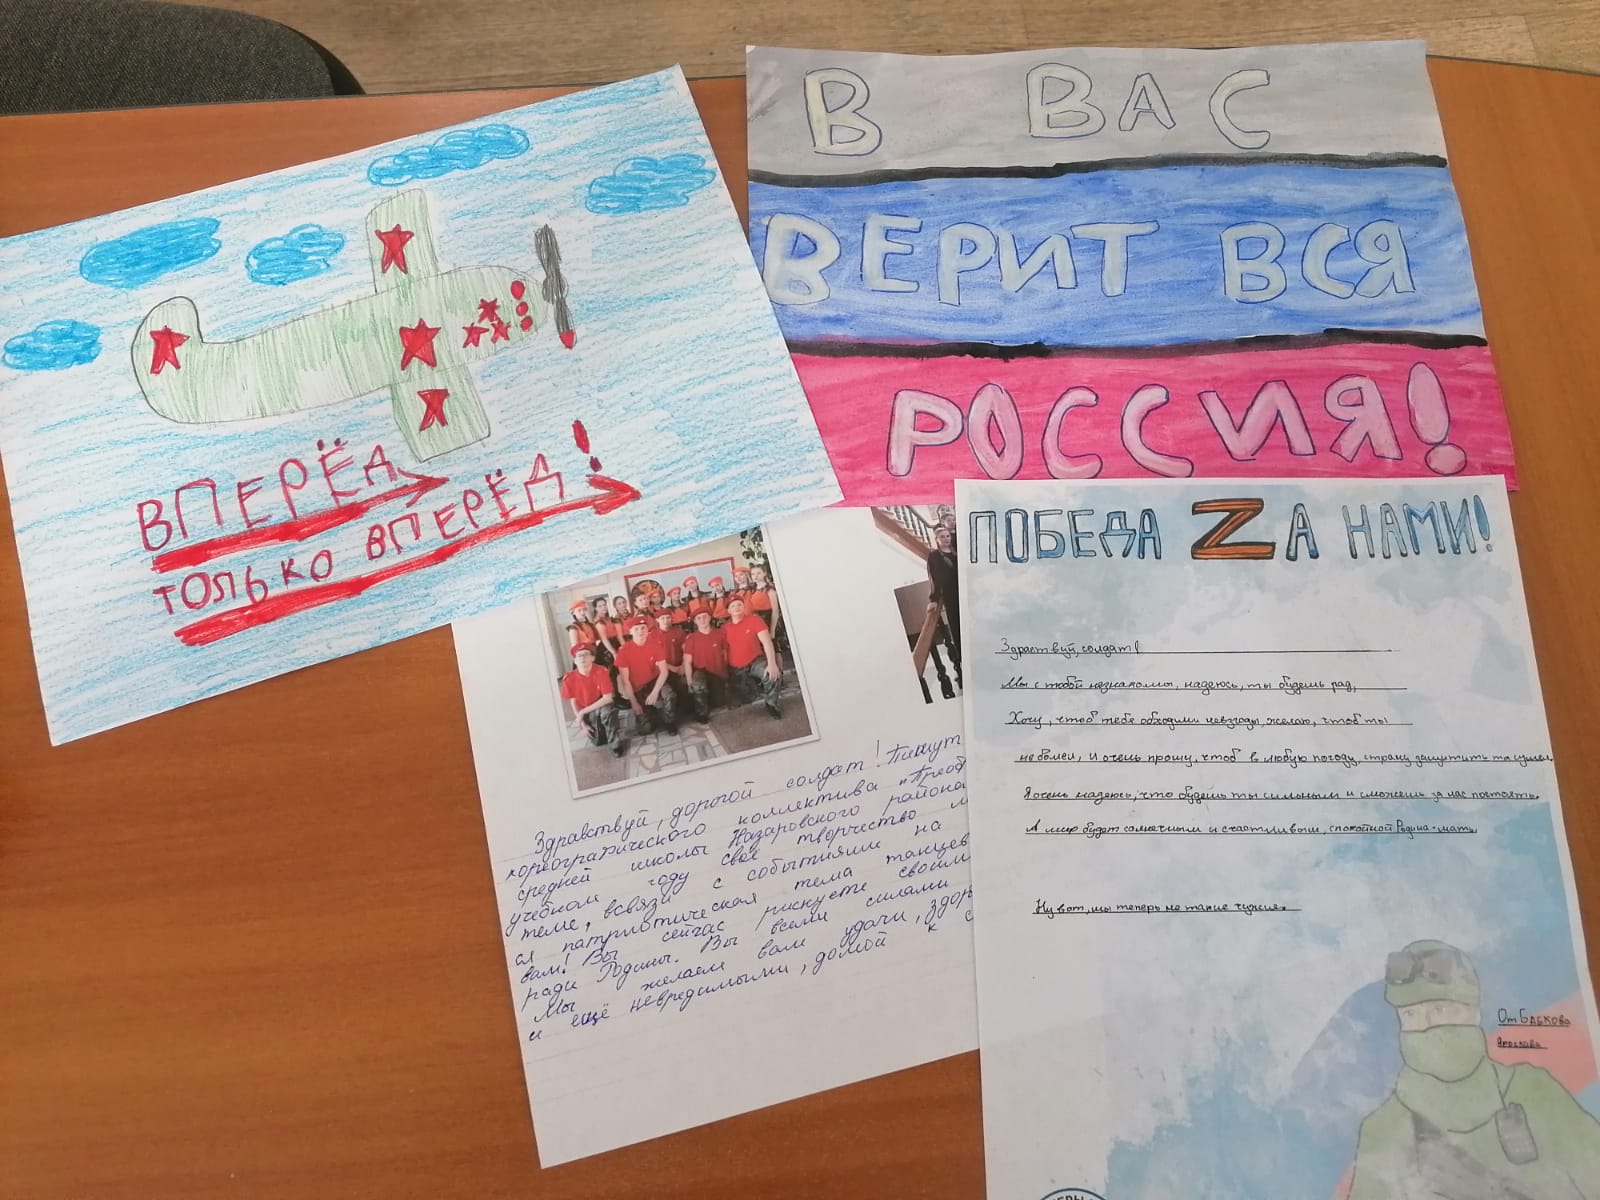 ВПЕРЁД
ТОЛЬКО ВПЕРЁД!
В ВАС
ВЕРИТ ВСЯ
РОССИЯ!
ПОБЕДА ZА НАМИ!
Здравствуй, солдат!
Мы с тобой незнакомы, надеюсь, ты будешь рад,
Хочу, чтоб тебя обходили невзгоды, желаю, чтоб ты
не болел, и очень прошу, чтоб в любую погоду, страну защитить ты сумел.
Я очень надеюсь, что будешь ты сильным и сможешь за нас постоять.
А мир будет солнечным и счастливым, спокойной Родина-мать.
Ну вот, мы теперь не такие чужие.
От Бабкова
Ярослава
Здравствуй, дорогой солдат! Пишут
хореографического коллектива "Преоб
средней школы Назаровского района
учебном году своё творчество
теме, всвязи с событиями на
ся патриотическая тема танцев
вам! Вы сейчас рискуете своим
ради Родины. Вы всеми силами
Мы желаем вам удачи, здор
и ещё невредимыми, домой к с